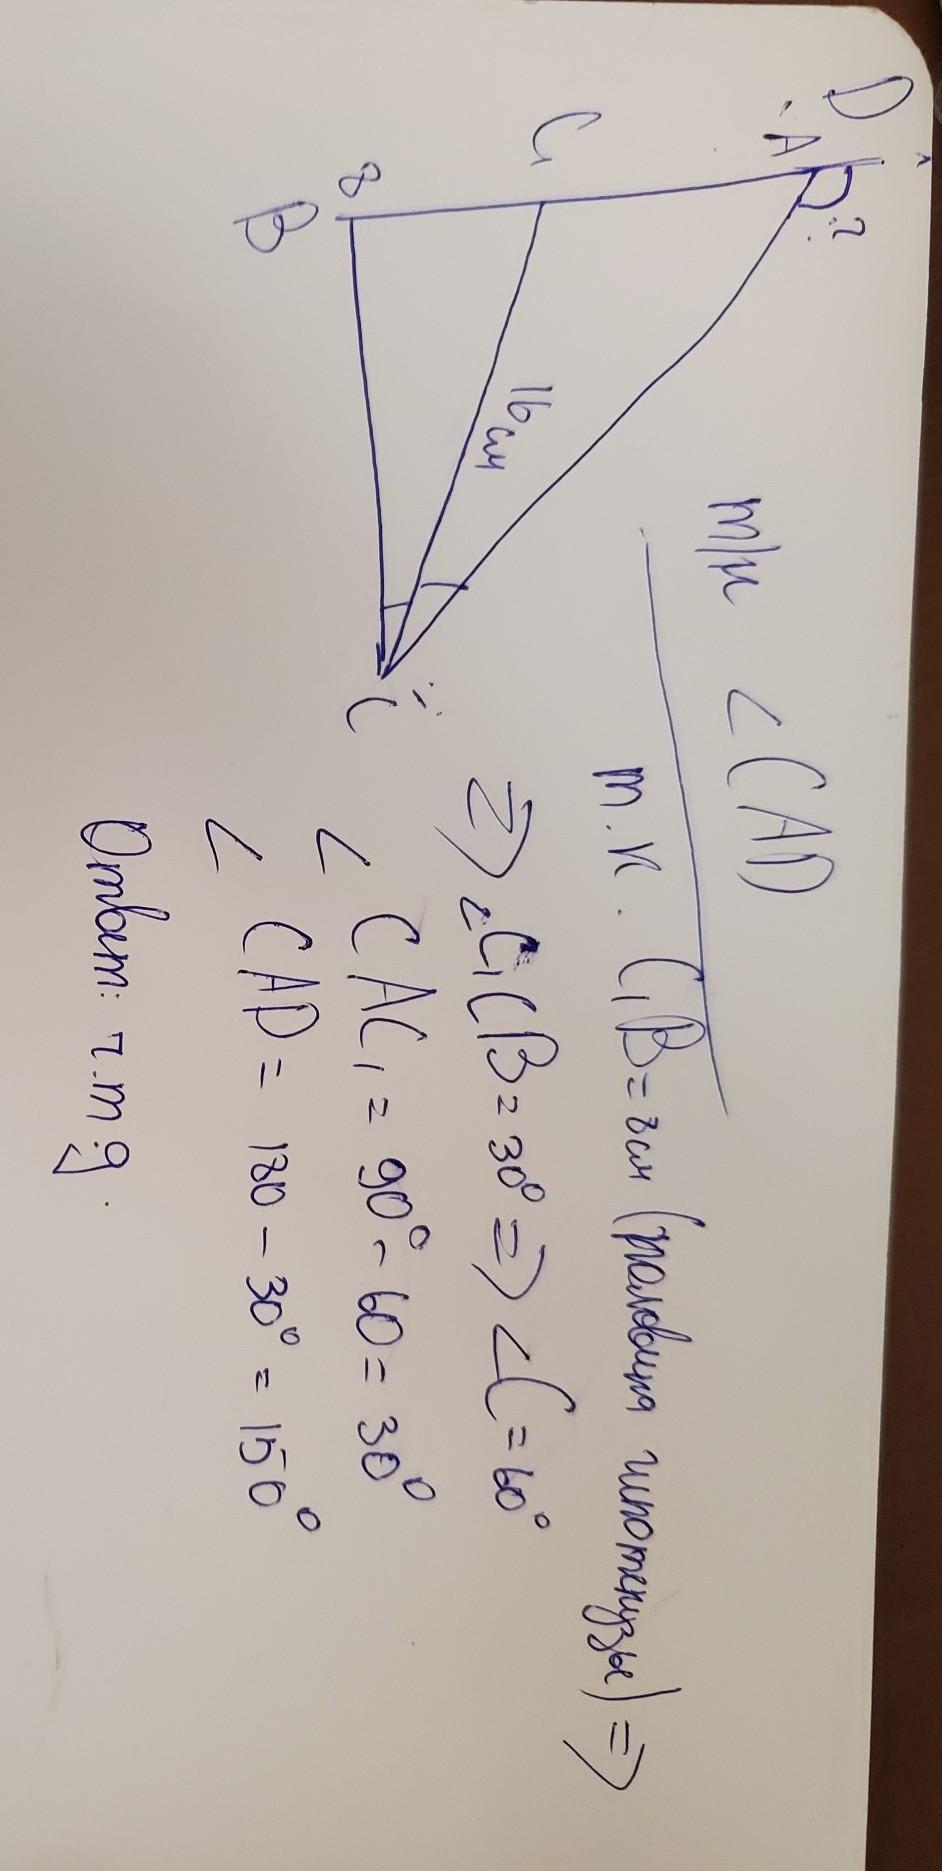 D
A
?
C₁
8
B
16 см
C
н/н ∠CAD
т.к. C₁B = 8см (половина гипотенузы) =>
=> ∠C₁CB = 30° => ∠C = 60°
∠CAC₁ = 90° - 60 = 30°
∠CAD = 180 - 30° = 150°
Ответ: ч.т.д.